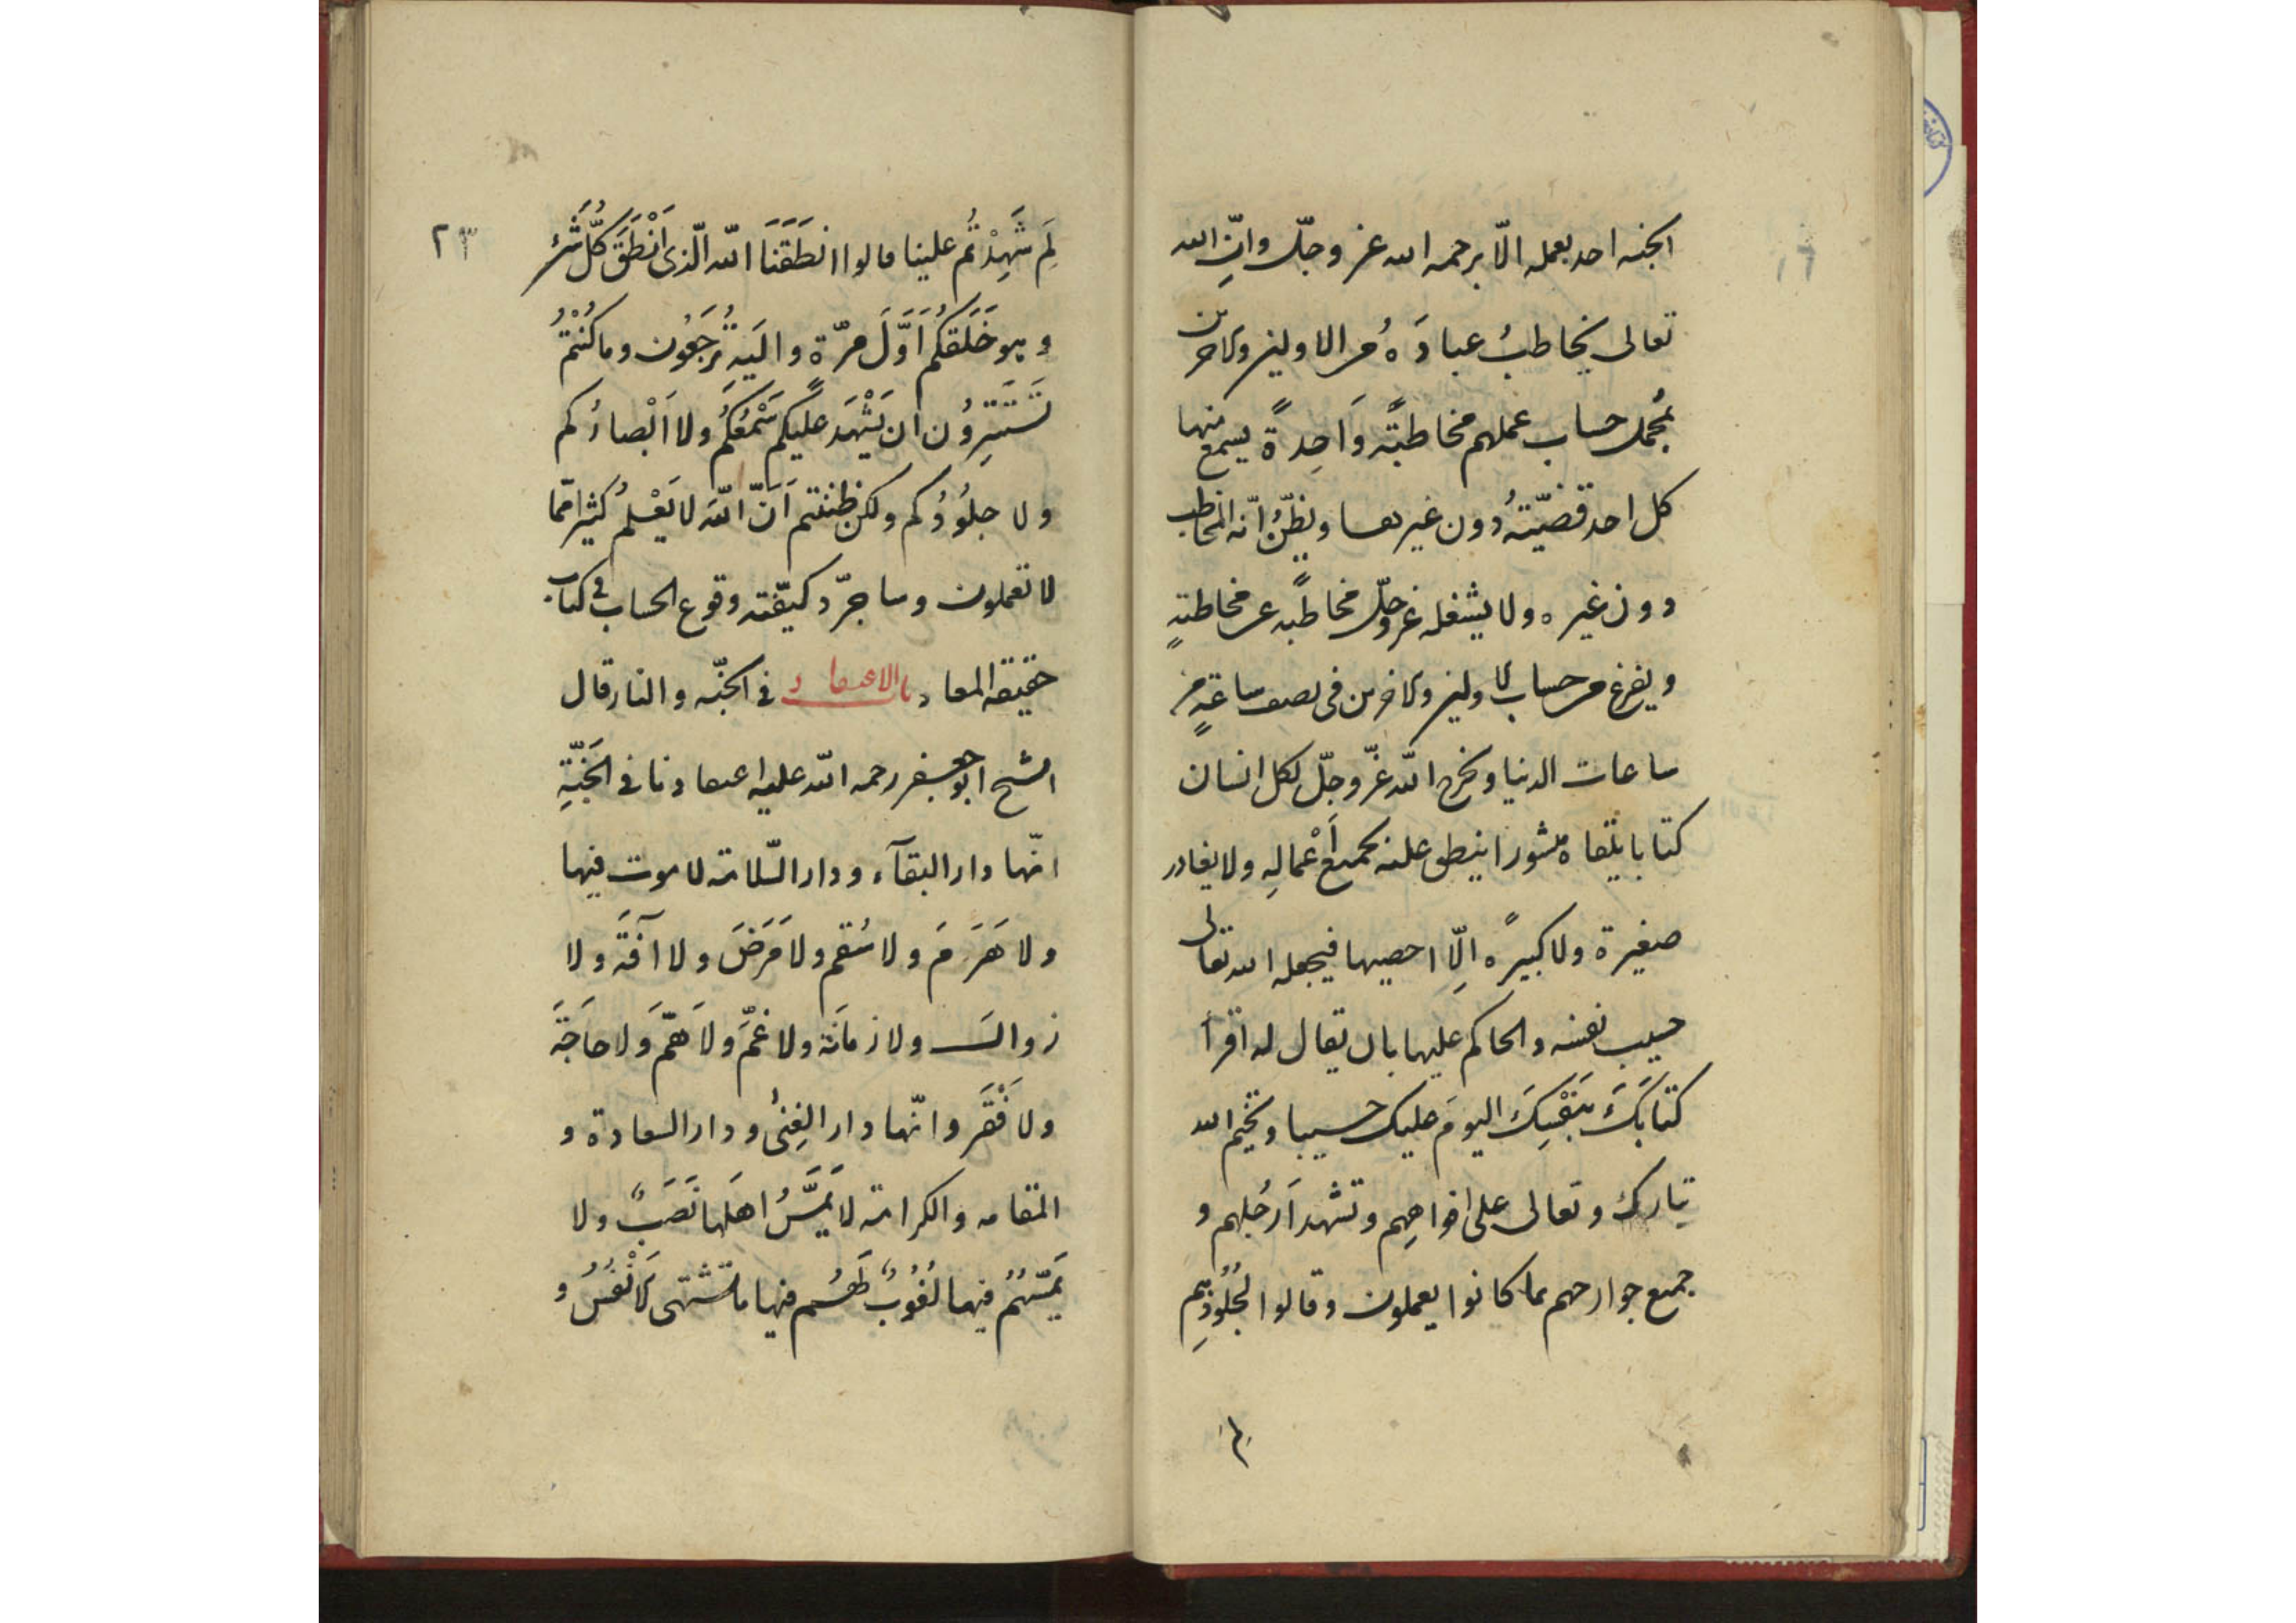 الجنه احد بعمله الّا برحمه الله عز وجلّ وانّ الله
تعالى يخاطبُ عبادَهُ من الاولين والاخرين
بمُجمل حساب عملهم مخاطبتًه وَاحِدةً يسمع منها
كل احد قضيّتهُ دون غيرها ويظنّ انّه المخاطب
دون غيره ولا يشغله عزوجلّ مخاطبًه عن مخاطبتهٍ
ويفرغ من حساب الاولين والاخرين فى نصف ساعةٍ من
ساعات الدنيا ويخرج الله عزّ وجلّ لكل انسان
كتابا يلقاه منشورا ينطق عليه بجميع اَعْمالِه ولا يغادر
صغيرة ولا كبيرًه اِلّا احصيها فيجعله الله تعالى
حسيب نفسه والحاكم عليها بان يقال له اقرأ
كتابَكَ بنَفْسِكَ اليومَ عليك حسيبا ويختم الله
تبارك وتعالى على افواههِم وتشهد اَرجُلهم و
جميع جوارحهم بما كانوا يعملون وقالوا لجُلُودِهِم
لم
٢٣
لِمَ شَهِدْتُم علينا قالوا انطَقَنَا الله الّذى اَنْطَقَ كُلَّ شَئ
وهو خَلَقَكُم اَوَّلَ مرّة واليَه تُرجَعُون وما كُنْتُمْ
تَستَتِرُون ان يَشْهَدَ عَلَيكم سَمْعُكُم ولا اَبْصارُكم
ولا جلُودُكم ولكن ظننتم اَنّ اللّهَ لا يَعْلمُ كثيرا مّما
لا تعملون وساجرّد كيفّيته وقوع الحساب فى كتاب
حقيقة المعاد باب الاعتقاد فى الجنّه والنار قال
الشيخ ابو جعفر رحمه الله عليه اعتقادنا فى الجَنّةِ
انّها دار البقآء ودار السّلامة لا موت فيها
ولا هَرَمَ ولا سُقم ولا مَرَضَ ولا آفَةَ ولا
زوالَ ولا زمانَة ولا غمَّ ولا هَمَّ ولا حاجَةَ
ولا فَقَْر وانّها دار الغِنىٰ ودار السعادة و
المقامه والكرامة لا يَمَسَُّ اهلَها نَصَبٌ ولا
يَمَسّهُم فيها لُغُوبٌ لَهُم فيها ما تشتهى الاَنْفُسُ و